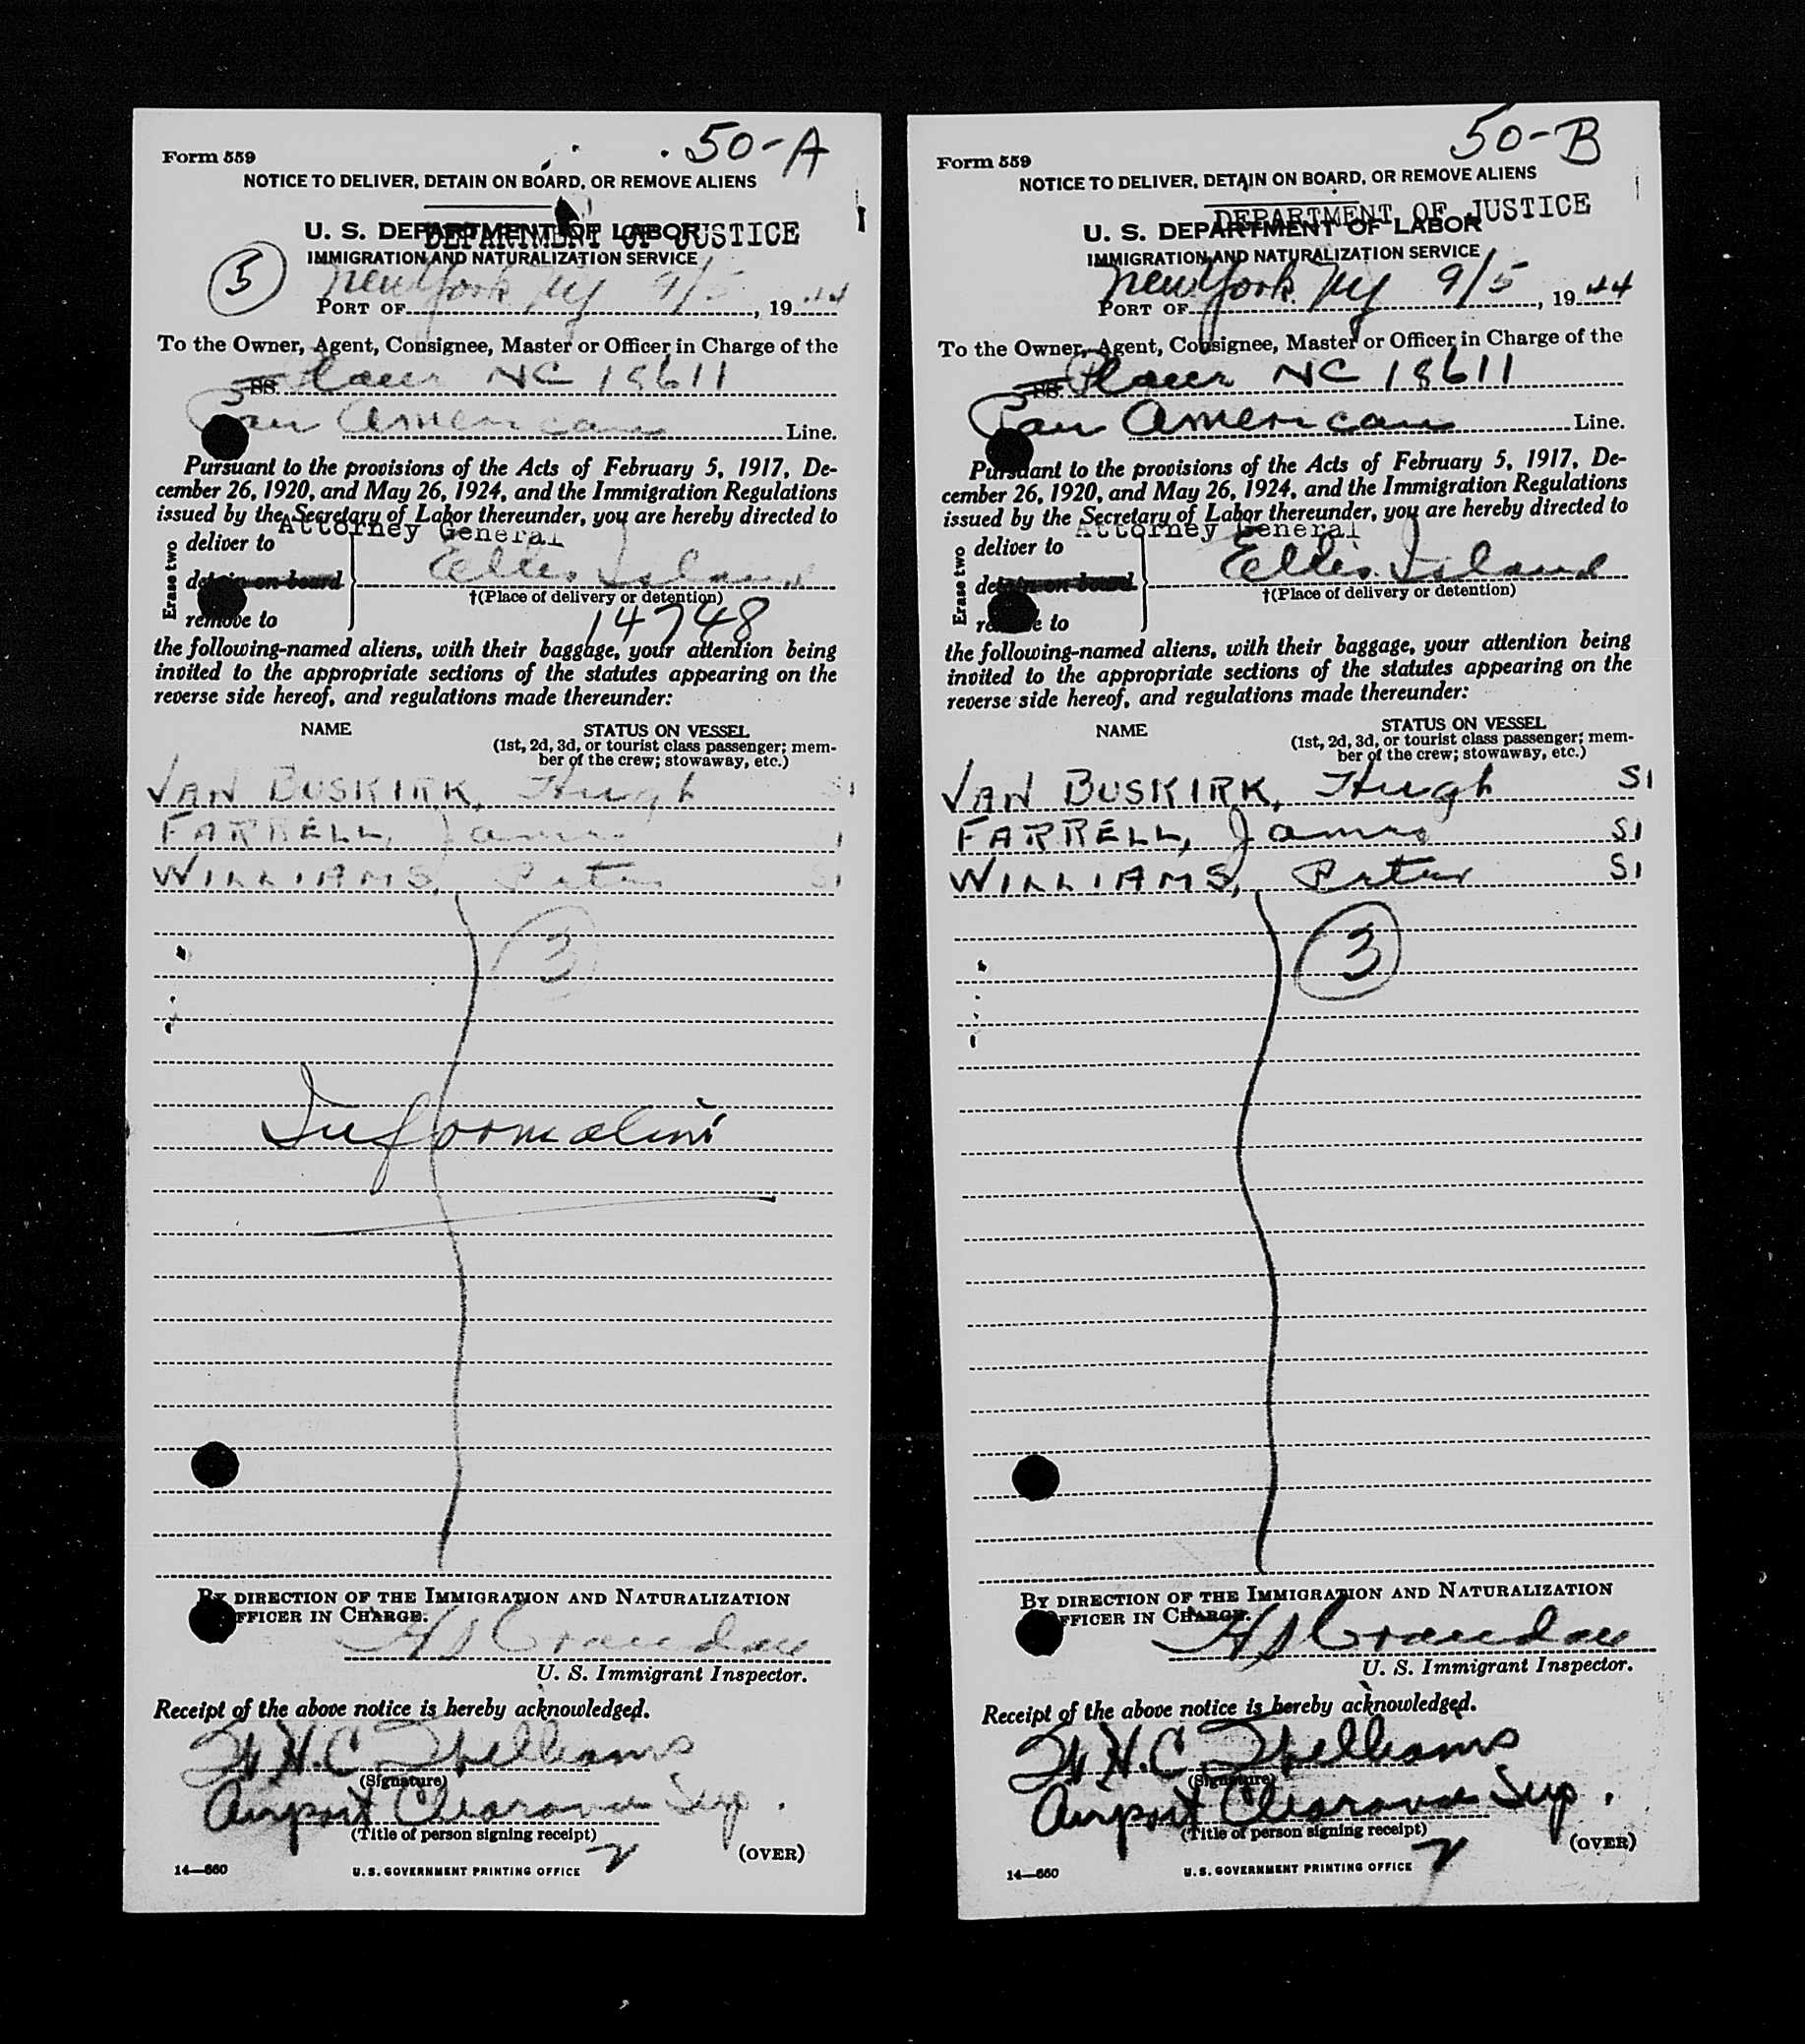 50-A
Form 559
NOTICE TO DELIVER, DETAIN ON BOARD, OR REMOVE ALIENS
U. S. DEPARTMENT OF LABOR
DEPARTMENT OF JUSTICE
IMMIGRATION AND NATURALIZATION SERVICE
5
PORT OF New York Ny 9/5, 1944
To the Owner, Agent, Consignee, Master or Officer in Charge of the
SS. Plane NC 18611
Pan American Line.
Pursuant to the provisions of the Acts of February 5, 1917, De-
cember 26, 1920, and May 26, 1924, and the Immigration Regulations
issued by the Secretary of Labor thereunder, you are hereby directed to
Attorney General
Erase two
deliver to
detain on board
Ellis Island
†(Place of delivery or detention)
remove to
14748
the following-named aliens, with their baggage, your attention being
invited to the appropriate sections of the statutes appearing on the
reverse side hereof, and regulations made thereunder:
NAME STATUS ON VESSEL
(1st, 2d, 3d, or tourist class passenger; mem-
ber of the crew; stowaway, etc.)
VAN BUSKIRK, Hugh SI
FARRELL, James I
WILLIAMS, Peter SI
3
BY DIRECTION OF THE IMMIGRATION AND NATURALIZATION
OFFICER IN CHARGE.
U. S. Immigrant Inspector.
Receipt of the above notice is hereby acknowledged.
H.C. Williams
(Signature)
Airport Clearance Sup.
(Title of person signing receipt)
(OVER)
14—660 U.S. GOVERNMENT PRINTING OFFICE
50-B
Form 559
NOTICE TO DELIVER, DETAIN ON BOARD, OR REMOVE ALIENS
DEPARTMENT OF JUSTICE
U. S. DEPARTMENT OF LABOR
IMMIGRATION AND NATURALIZATION SERVICE
PORT OF New York Ny 9/5, 1944
To the Owner, Agent, Consignee, Master or Officer in Charge of the
SS. Plane NC 18611
Pan American Line.
Pursuant to the provisions of the Acts of February 5, 1917, De-
cember 26, 1920, and May 26, 1924, and the Immigration Regulations
issued by the Secretary of Labor thereunder, you are hereby directed to
Attorney General
Erase two
deliver to
detain on board
Ellis Island
†(Place of delivery or detention)
remove to
the following-named aliens, with their baggage, your attention being
invited to the appropriate sections of the statutes appearing on the
reverse side hereof, and regulations made thereunder:
NAME STATUS ON VESSEL
(1st, 2d, 3d, or tourist class passenger; mem-
ber of the crew; stowaway, etc.)
VAN BUSKIRK, Hugh SI
FARRELL, James SI
WILLIAMS, Peter SI
3
BY DIRECTION OF THE IMMIGRATION AND NATURALIZATION
OFFICER IN CHARGE.
U. S. Immigrant Inspector.
Receipt of the above notice is hereby acknowledged.
H.C. Williams
(Signature)
Airport Clearance Sup.
(Title of person signing receipt)
(OVER)
14—660 U.S. GOVERNMENT PRINTING OFFICE